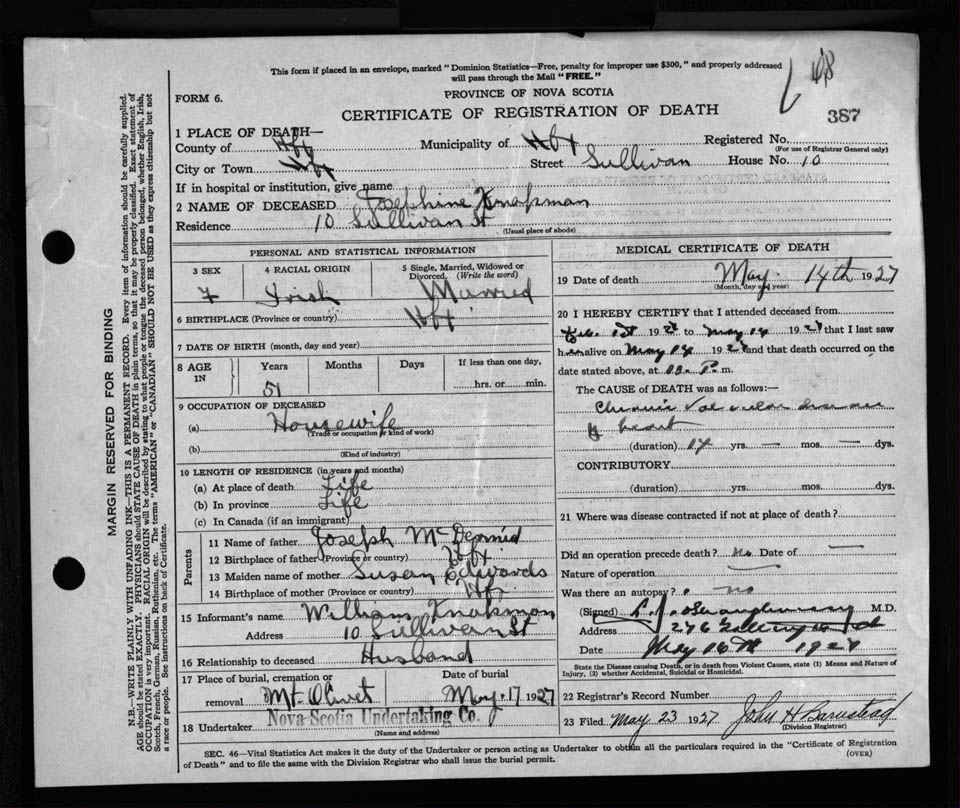 This form if placed in an envelope, marked "Dominion Statistics—Free, penalty for improper use $300," and properly addressed
will pass through the Mail "FREE."
FORM 6.
PROVINCE OF NOVA SCOTIA
CERTIFICATE OF REGISTRATION OF DEATH
387
1 PLACE OF DEATH—
County of Hfx Municipality of Hfx Registered No.
(For use of Registrar General only)
City or Town Hfx Street Sullivan House No. 10
If in hospital or institution, give name
2 NAME OF DECEASED Josephine Knapman
Residence 10 Sullivan St
(Usual place of abode)
PERSONAL AND STATISTICAL INFORMATION
3 SEX 4 RACIAL ORIGIN 5 Single, Married, Widowed or Divorced. (Write the word)
F Irish Married
6 BIRTHPLACE (Province or country) Hfx
7 DATE OF BIRTH (month, day and year)
8 AGE IN Years Months Days If less than one day,
51 hrs. or min.
9 OCCUPATION OF DECEASED
(a) Housewife
(Trade or occupation or kind of work)
(b)
(Kind of industry)
10 LENGTH OF RESIDENCE (in years and months)
(a) At place of death Life
(b) In province Life
(c) In Canada (if an immigrant)
Parents
11 Name of father Joseph McDermid
12 Birthplace of father (Province or country) Hfx
13 Maiden name of mother Susan Edwards
14 Birthplace of mother (Province or country) Hfx
15 Informant's name William Knapman
Address 10 Sullivan St
16 Relationship to deceased Husband
17 Place of burial, cremation or removal Date of burial
Mt. Olivet May 17 1927
18 Undertaker Nova Scotia Undertaking Co.
(Name and address)
MEDICAL CERTIFICATE OF DEATH
19 Date of death May 14th 1927
(Month, day and year)
20 I HEREBY CERTIFY that I attended deceased from
1st 192 to May 14 1927 that I last saw
h alive on May 14 1927 and that death occurred on the
date stated above, at P. m.
The CAUSE of DEATH was as follows:—
Chronic Valvular disease
of heart
(duration) 14 yrs. — mos. — dys.
CONTRIBUTORY
(duration) yrs. mos. dys.
21 Where was disease contracted if not at place of death?
Did an operation precede death? no Date of —
Nature of operation —
Was there an autopsy? no
(Signed) M.D.
Address 276
Date May 16th 1927
State the Disease causing Death, or in death from Violent Causes, state (1) Means and Nature of
Injury, (2) whether Accidental, Suicidal or Homicidal.
22 Registrar's Record Number
23 Filed May 23 1927 John H Barnstead
(Division Registrar)
SEC. 46—Vital Statistics Act makes it the duty of the Undertaker or person acting as Undertaker to obtain all the particulars required in the "Certificate of Registration
of Death" and to file the same with the Division Registrar who shall issue the burial permit.
(OVER)
MARGIN RESERVED FOR BINDING
N.B.—WRITE PLAINLY WITH UNFADING INK—THIS IS A PERMANENT RECORD. Every item of information should be carefully supplied.
AGE should be stated EXACTLY. PHYSICIANS should STATE CAUSE OF DEATH in plain terms, so that it may be properly classified. Exact statement of
OCCUPATION is very important. RACIAL ORIGIN will be described by stating to what people or tongue the deceased person belonged, whether English, Irish,
Scotch, French, German, Russian, Ruthenian, etc. The terms "AMERICAN" or "CANADIAN" SHOULD NOT BE USED as they express citizenship but not
a race or people. See instructions on back of Certificate.